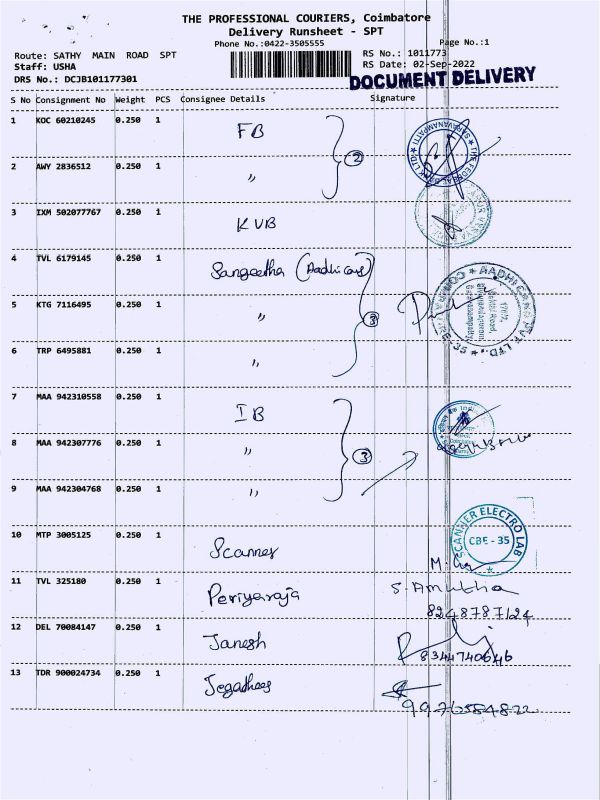 THE PROFESSIONAL COURIERS, Coimbatore
Delivery Runsheet - SPT
Phone No.:0422-3505555
Page No.:1
Route: SATHY MAIN ROAD SPT
RS No.: 1011773
Staff: USHA
RS Date: 02-Sep-2022
DRS No.: DCJB101177301
DOCUMENT DELIVERY
S No Consignment No Weight PCS Consignee Details Signature
1 KOC 60210245 0.250 1 FB
2
2 AWY 2836512 0.250 1 "
3 IXM 502077767 0.250 1 KVB
4 TVL 6179145 0.250 1 Sangeetha (Aadhi cars)
5 KTG 7116495 0.250 1 "
3
6 TRP 6495881 0.250 1 "
7 MAA 942310558 0.250 1 IB
8 MAA 942307776 0.250 1 "
3
9 MAA 942304768 0.250 1 "
10 MTP 3005125 0.250 1 Scanner
SCANNER ELECTRO LAB
CBE - 35
11 TVL 325180 0.250 1 Periyaraja S. Amutha
8248787124
12 DEL 70084147 0.250 1 Janesh
8344740646
13 TDR 900024734 0.250 1 Jegathees